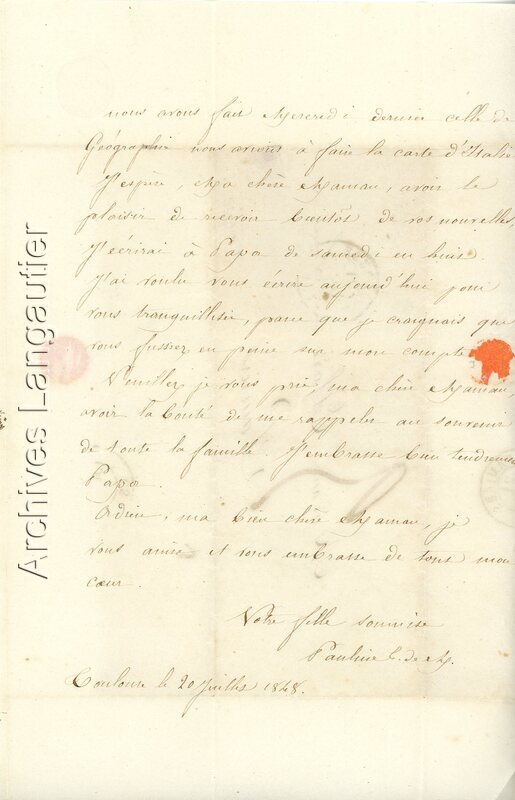 nous avons fait Mercredi dernier celle de
Géographie nous avions à faire la carte d'Italie
J'espère, Ma chère Maman, avoir le
plaisir de recevoir bientôt de vos nouvelles.
J'écrirai à Papa de samedi en huit.
J'ai voulu vous écrire aujourd'hui pour
vous tranquilliser, parce que je craignais que
vous fussiez en peine sur mon compte.
Veuillez, je vous prie, ma chère Maman,
avoir la bonté de me rappeler au souvenir
de toute la famille. J'embrasse bien tendrement
Papa.
Adieu, ma bien chère Maman, je
vous aime et vous embrasse de tout mon
cœur.
Votre fille soumise
Pauline C. de M.
Toulouse le 20 Juillet 1848.
Archives Langautier